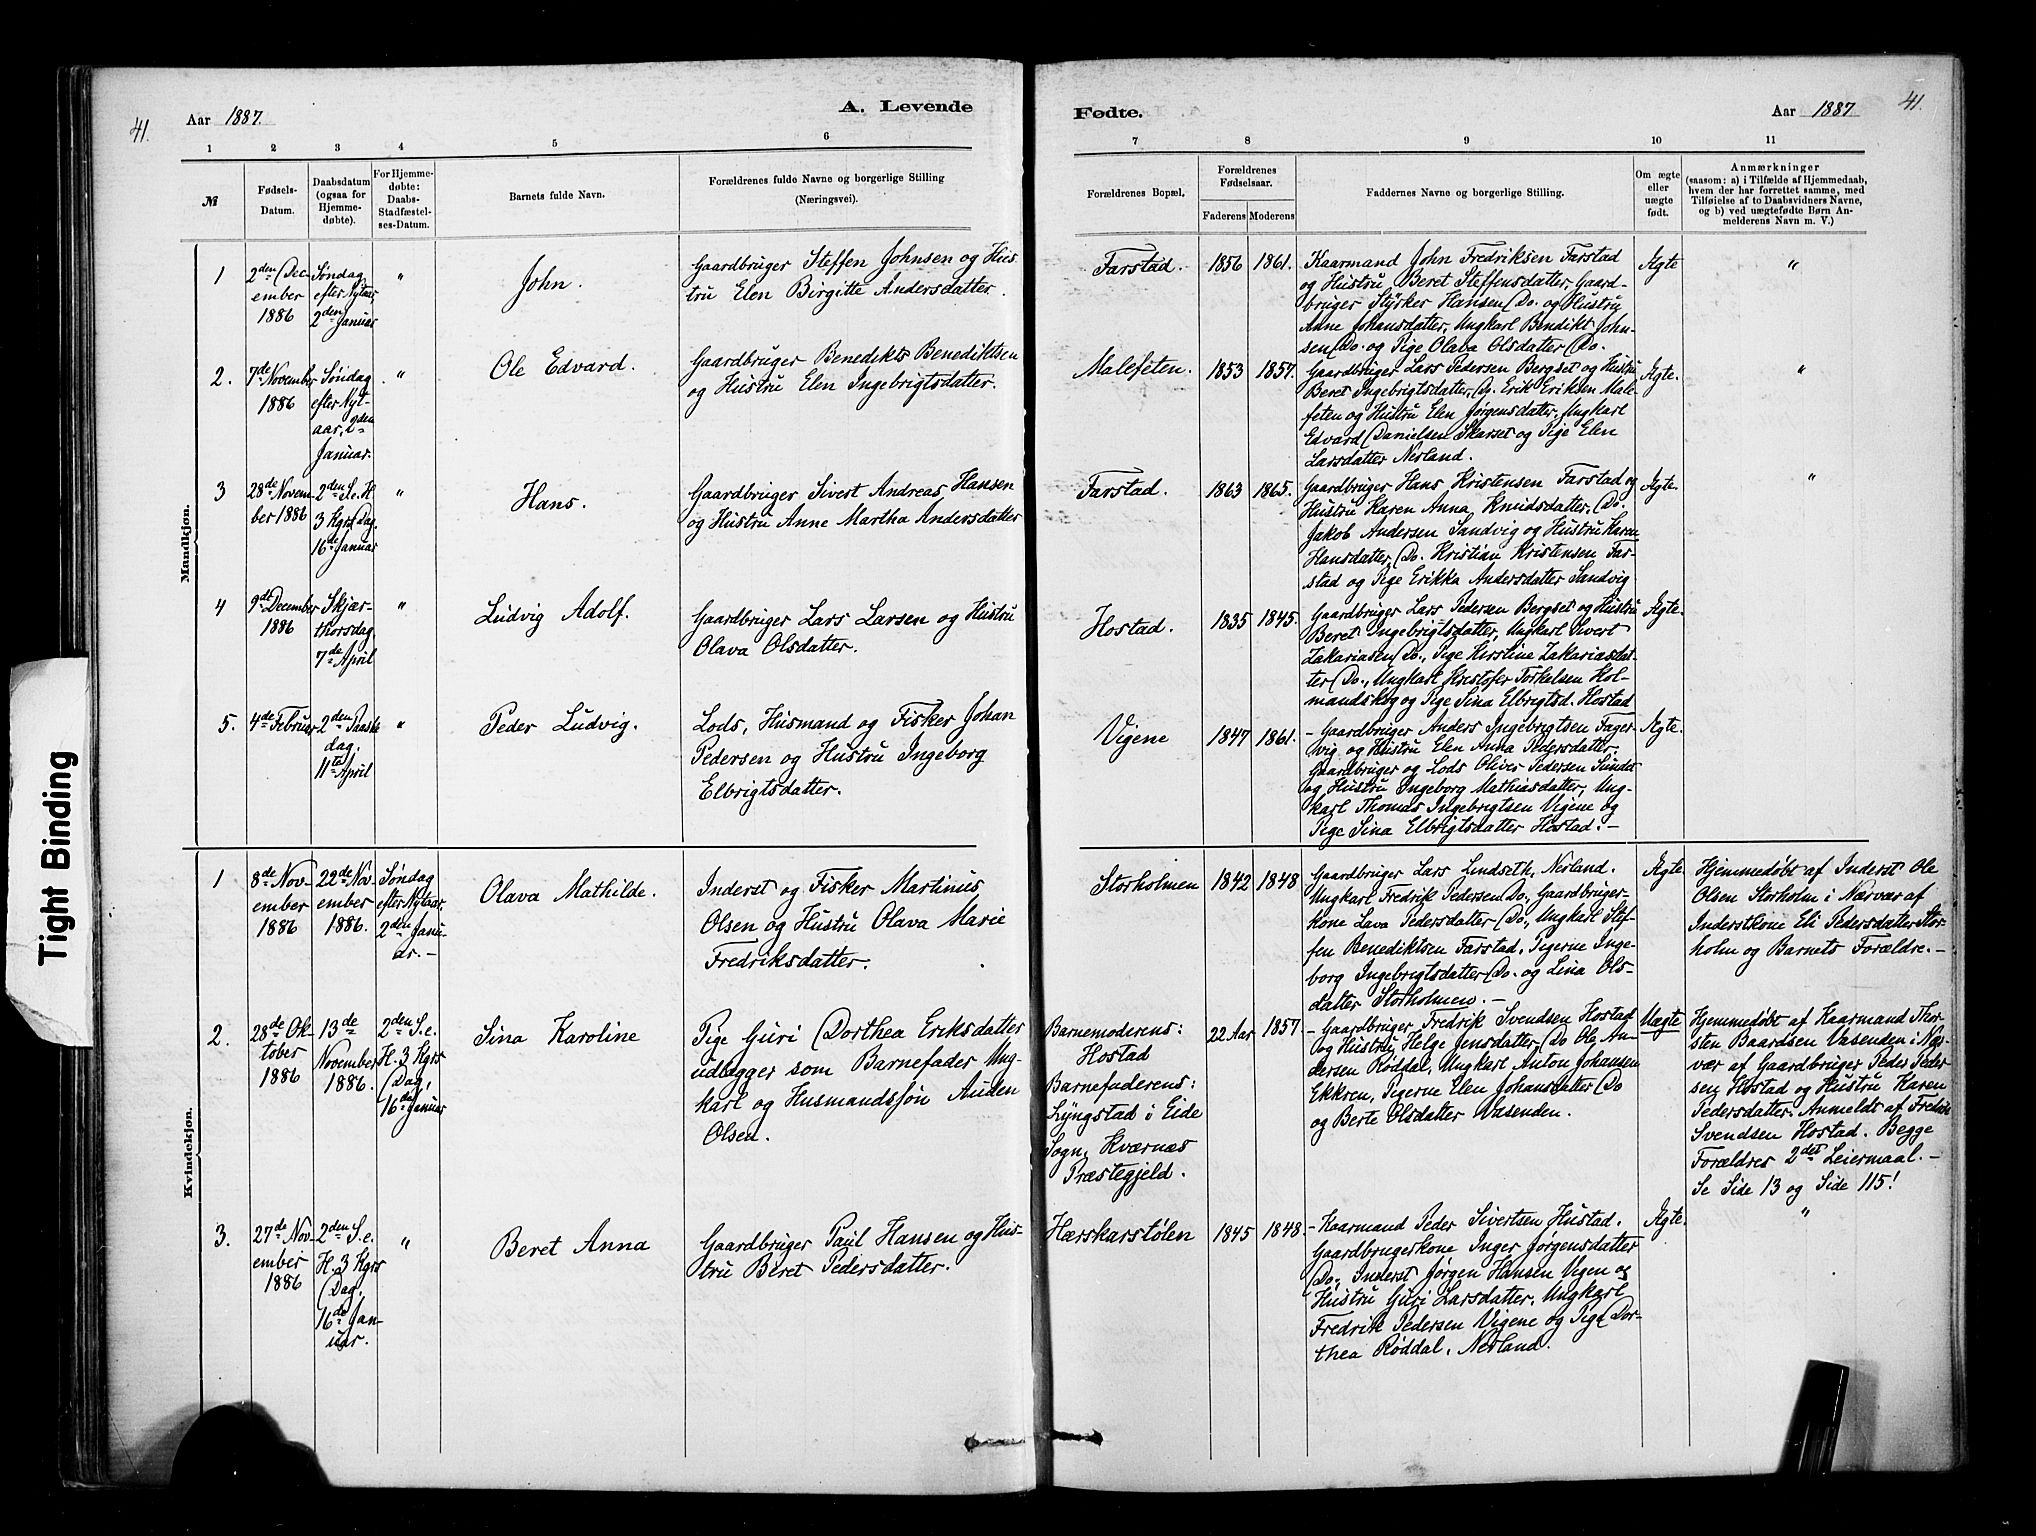 41.
Aar 1887.
A. Levende
Fødte.
Aar 1887
41.
1 2 3 4 5 6 7 8 9 10 11
№
Fødsels-
Datum.
Daabsdatum
(ogsaa for
Hjemme-
døbte).
For Hjemme-
døbte:
Daabs-
Stadfæstel-
ses-Datum.
Barnets fulde Navn.
Forældrenes fulde Navne og borgerlige Stilling
(Næringsvei).
Forældrenes Bopæl,
Forældrenes
Fødselsaar.
Faderens Moderens
Faddernes Navne og borgerlige Stilling.
Om ægte
eller
uægte
født.
Anmærkninger
(saasom: a) i Tilfælde af Hjemmedaab,
hvem der har forrettet samme, med
Tilføielse af to Daabsvidners Navne,
og b) ved uægtefødte Børn An-
melderens Navn m. V.)
Mandkjøn.
1
2den Dec-
ember
1886
Søndag
efter Nytaar
2den Januar
"
John.
Gaardbruger Steffen Johnsen og Hus
tru Elen Birgitte Andersdatter.
Farstad.
1856
1861.
Kaarmand John Fredriksen Farstad
og Hustru Beret Steffensdatter, Gaard-
bruger Styrker Hansen Do. og Hustru
Anne Johansdatter, Ungkarl Bendikt John-
sen Do. og Pige Olava Olsdatter Do.
Ægte
"
2.
7de November
1886
Søndag
efter Nyt-
aar, 2den
Januar.
"
Ole Edvard.
Gaardbruger Benedikts Benediktsen
og Hustru Elen Ingebrigtsdatter.
Malefeten.
1853
1857.
Gaardbruger Lars Pedersen Bergset og Hustru
Beret Ingebrigtsdatter, Do. Erik Eriksen Male-
feten og Hustru Elen Jørgensdatter, Ungkarl
Edvard Danielsen Skarset og Pige Elen
Larsdatter Nerland.
Ægte.
"
3
28de Novem-
ber 1886
2den S. e. H
3 Kgrs Dag.
16de Januar
"
Hans.
Gaardbruger Sivert Andreas Hansen
og Hustru Anne Martha Andersdatter
Farstad.
1863
1865.
Gaardbruger Hans Kristensen Farstad og
Hustru Karen Anna Knudsdatter, Do.
Jakob Andersen Sandvig og Hustru Karen
Hansdatter, Do. Kristian Kristensen Far-
stad og Pige Erikka Andersdatter Sandvig
Ægte.
"
4
9de December
1886
Skjær-
thorsdag
7de April
"
Ludvig Adolf.
Gaardbruger Lars Larsen og Hustru
Olava Olsdatter.
Hostad.
1835
1845.
Gaardbruger Lars Pedersen Bergset og Hustru
Beret Ingebrigtsdatter, Ungkarl Sivert
Zakariasen Do., Pige Kirstine Zakariasdat-
ter Do., Ungkarl Kristofer Torkelsen Hol-
mandskog og Pige Sina Elbrigtsd. Hostad
Ægte.
5.
4de Februar
2den Paaske
dag.
11te April
"
Peder Ludvig.
Lods, Husmand og Fisker Johan
Pedersen og Hustru Ingeborg
Elbrigtsdatter.
Vigene
1847
1861.
- Gaardbruger Anders Ingebrigtsen Fager-
vig og Hustru Elen Anna Pedersdatter,
Gaardbruger og Lods Oliver Pedersen Sundet
og Hustru Ingeborg Mathiasdatter, Ung-
karl Thomas Ingebrigtsen Vigene og
Pige Sina Elbrigtsdatter Hostad. -
Ægte.
Kvindekjøn.
1
8de Nov-
ember
1886
22de Nov-
ember
1886.
Søndag
efter Nytaar,
2den Janu-
ar. -
Olava Mathilde.
Inderst og Fisker Martinus
Olsen og Hustru Olava Marie
Fredriksdatter.
Storholmen
1842
1848
Gaardbruger Lars Lindseth, Nerland.
Ungkarl Fredrik Pedersen Do, Gaardbruger-
kone Lava Pedersdatter Do, Ungkarl Stef-
fen Benediktsen Farstad, Pigerne Inge-
borg Ingebrigtsdatter Do. og Lina Ols-
datter Storholmen. -
Ægte.
Hjemmedøbt af Inderst Ole
Olsen Storholm i Nærvær af
Inderstkone Eli Pedersdatter Stor-
holm og Barnets Forældre. -
2.
28de Ok-
tober
1886
13de
November
1886.
2den S. e.
H. 3 Kgrs
Dag,
16de Januar
Sina Karoline
Pige Guri Dorthea Eriksdatter
udlægger som Barnefader Ung
karl og Husmandssøn Auden
Olsen.
Barnemoderens:
Hostad
Barnefaderens:
Lyngstad i Eide
Sogn, Kværnæs
Præstegjeld.
22 Aar
1857
- Gaardbruger Fredrik Svendsen Hostad
og Hustru Helge Jensdatter, Do Ole An-
dersen Røddal, Ungkarl Anton Johansen
Ekkren, Pigerne Elen Johansdatter Do
og Berte Olsdatter Vasenden.
Uægte
Hjemmedøbt af Kaarmand Thor-
sten Baardsen Vasenden i Nær-
vær af Gaardbruger Peder Peder-
sen Hostad og Hustru Karen
Pedersdatter. Anmeldt af Fredrik
Svendsen Hostad. Begge
Forældres 2det Leiermaal. -
Se Side 13 og Side 115!
3.
27de Nov-
ember
1886
2den S. e.
H. 3 Kgrs
Dag,
16de Jan-
uar.
"
Beret Anna
Gaardbruger Paul Hansen og Hus-
tru Beret Pedersdatter.
Hærskarstølen
1845
1848.
- Kaarmand Peder Sivertsen Hustad.
Gaardbrugerkone Inger Jørgensdatter
Do., Inderst Jørgen Hansen Vigen og
Hustru Guri Larsdatter, Ungkarl
Fredrik Pedersen Vigene og Pige Dor-
thea Røddal, Nerland.
Ægte.
"
Tight Binding